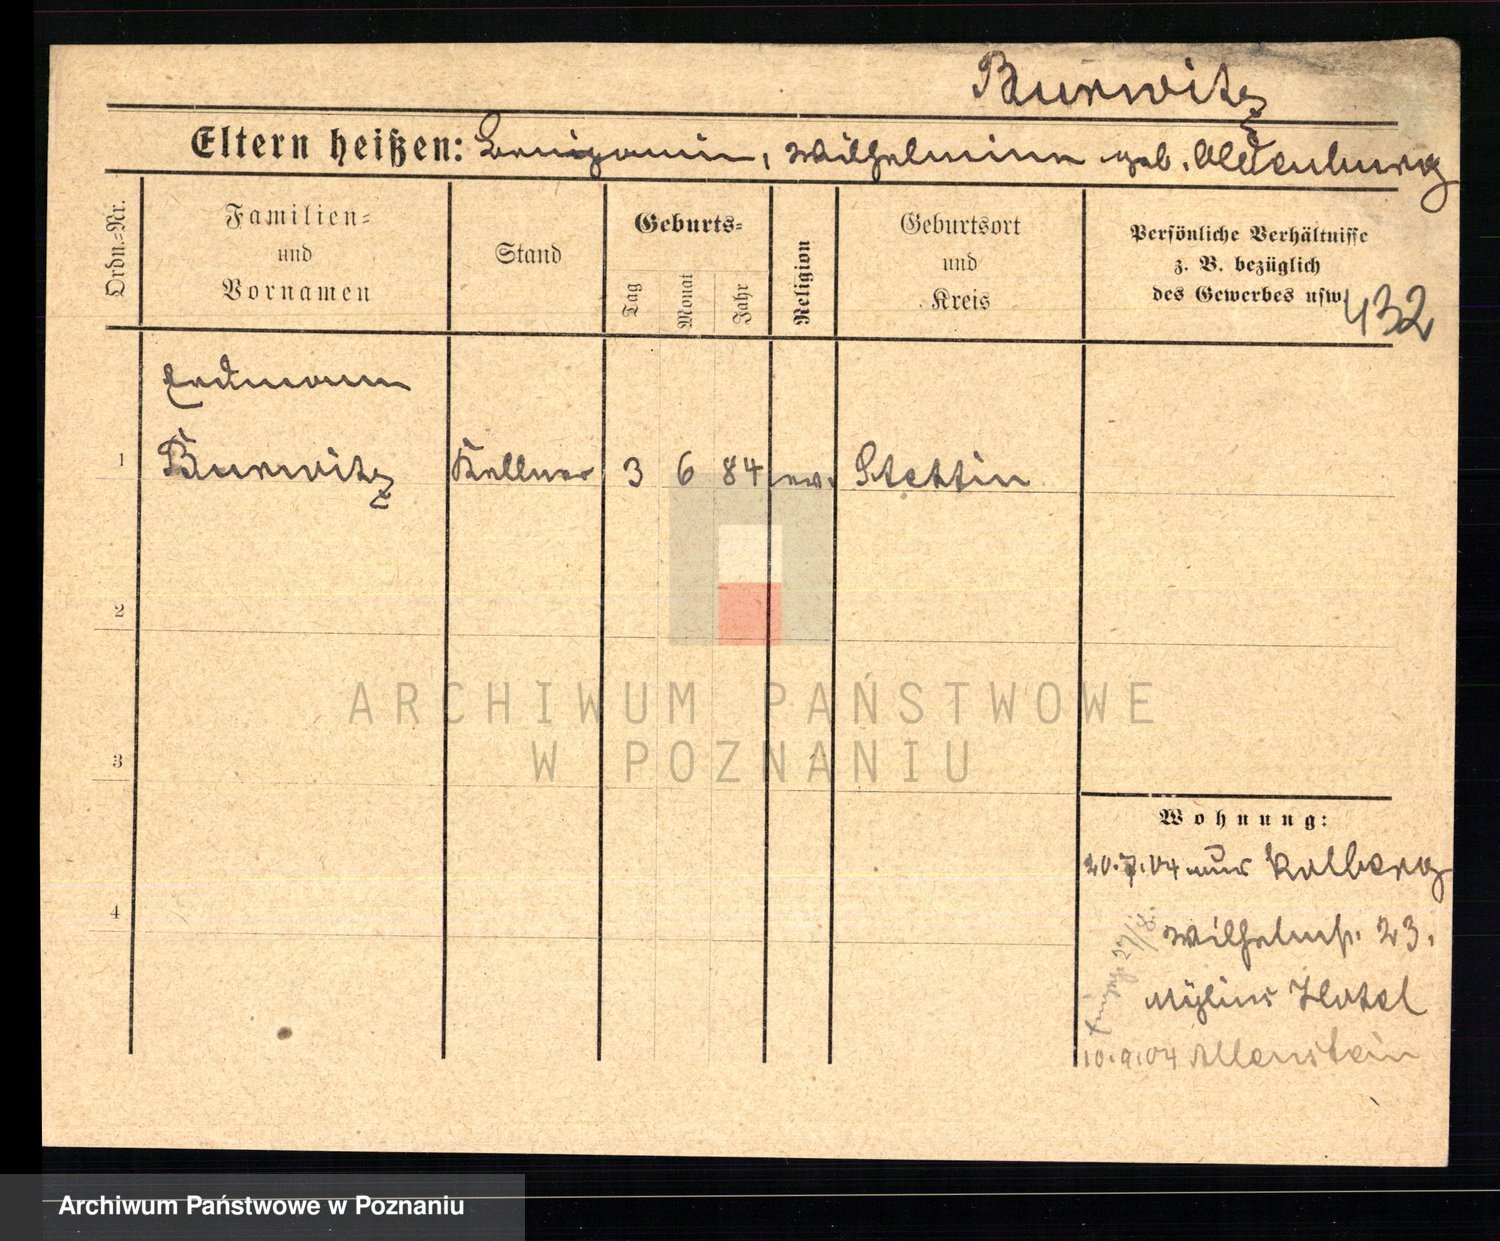 Burwitz
Eltern heißen: Benjamin, Wilhelmine geb. Oldenburg
Ordn.-Nr.
Familien-
und
Vornamen
Stand
Geburts-
Tag
Monat
Jahr
Religion
Geburtsort
und
Kreis
Persönliche Verhältnisse
z. B. bezüglich
des Gewerbes usw.
432
Erdmann
1 Burwitz Kellner 3 6 84 ev. Stettin
2
3
4
ARCHIWUM PAŃSTWOWE
W POZNANIU
Wohnung:
20.7.04 aus Kolberg
Wilhelmstr. 23.
Mylius Hotel
27/8.
10.9.04 Allenstein
Archiwum Państwowe w Poznaniu